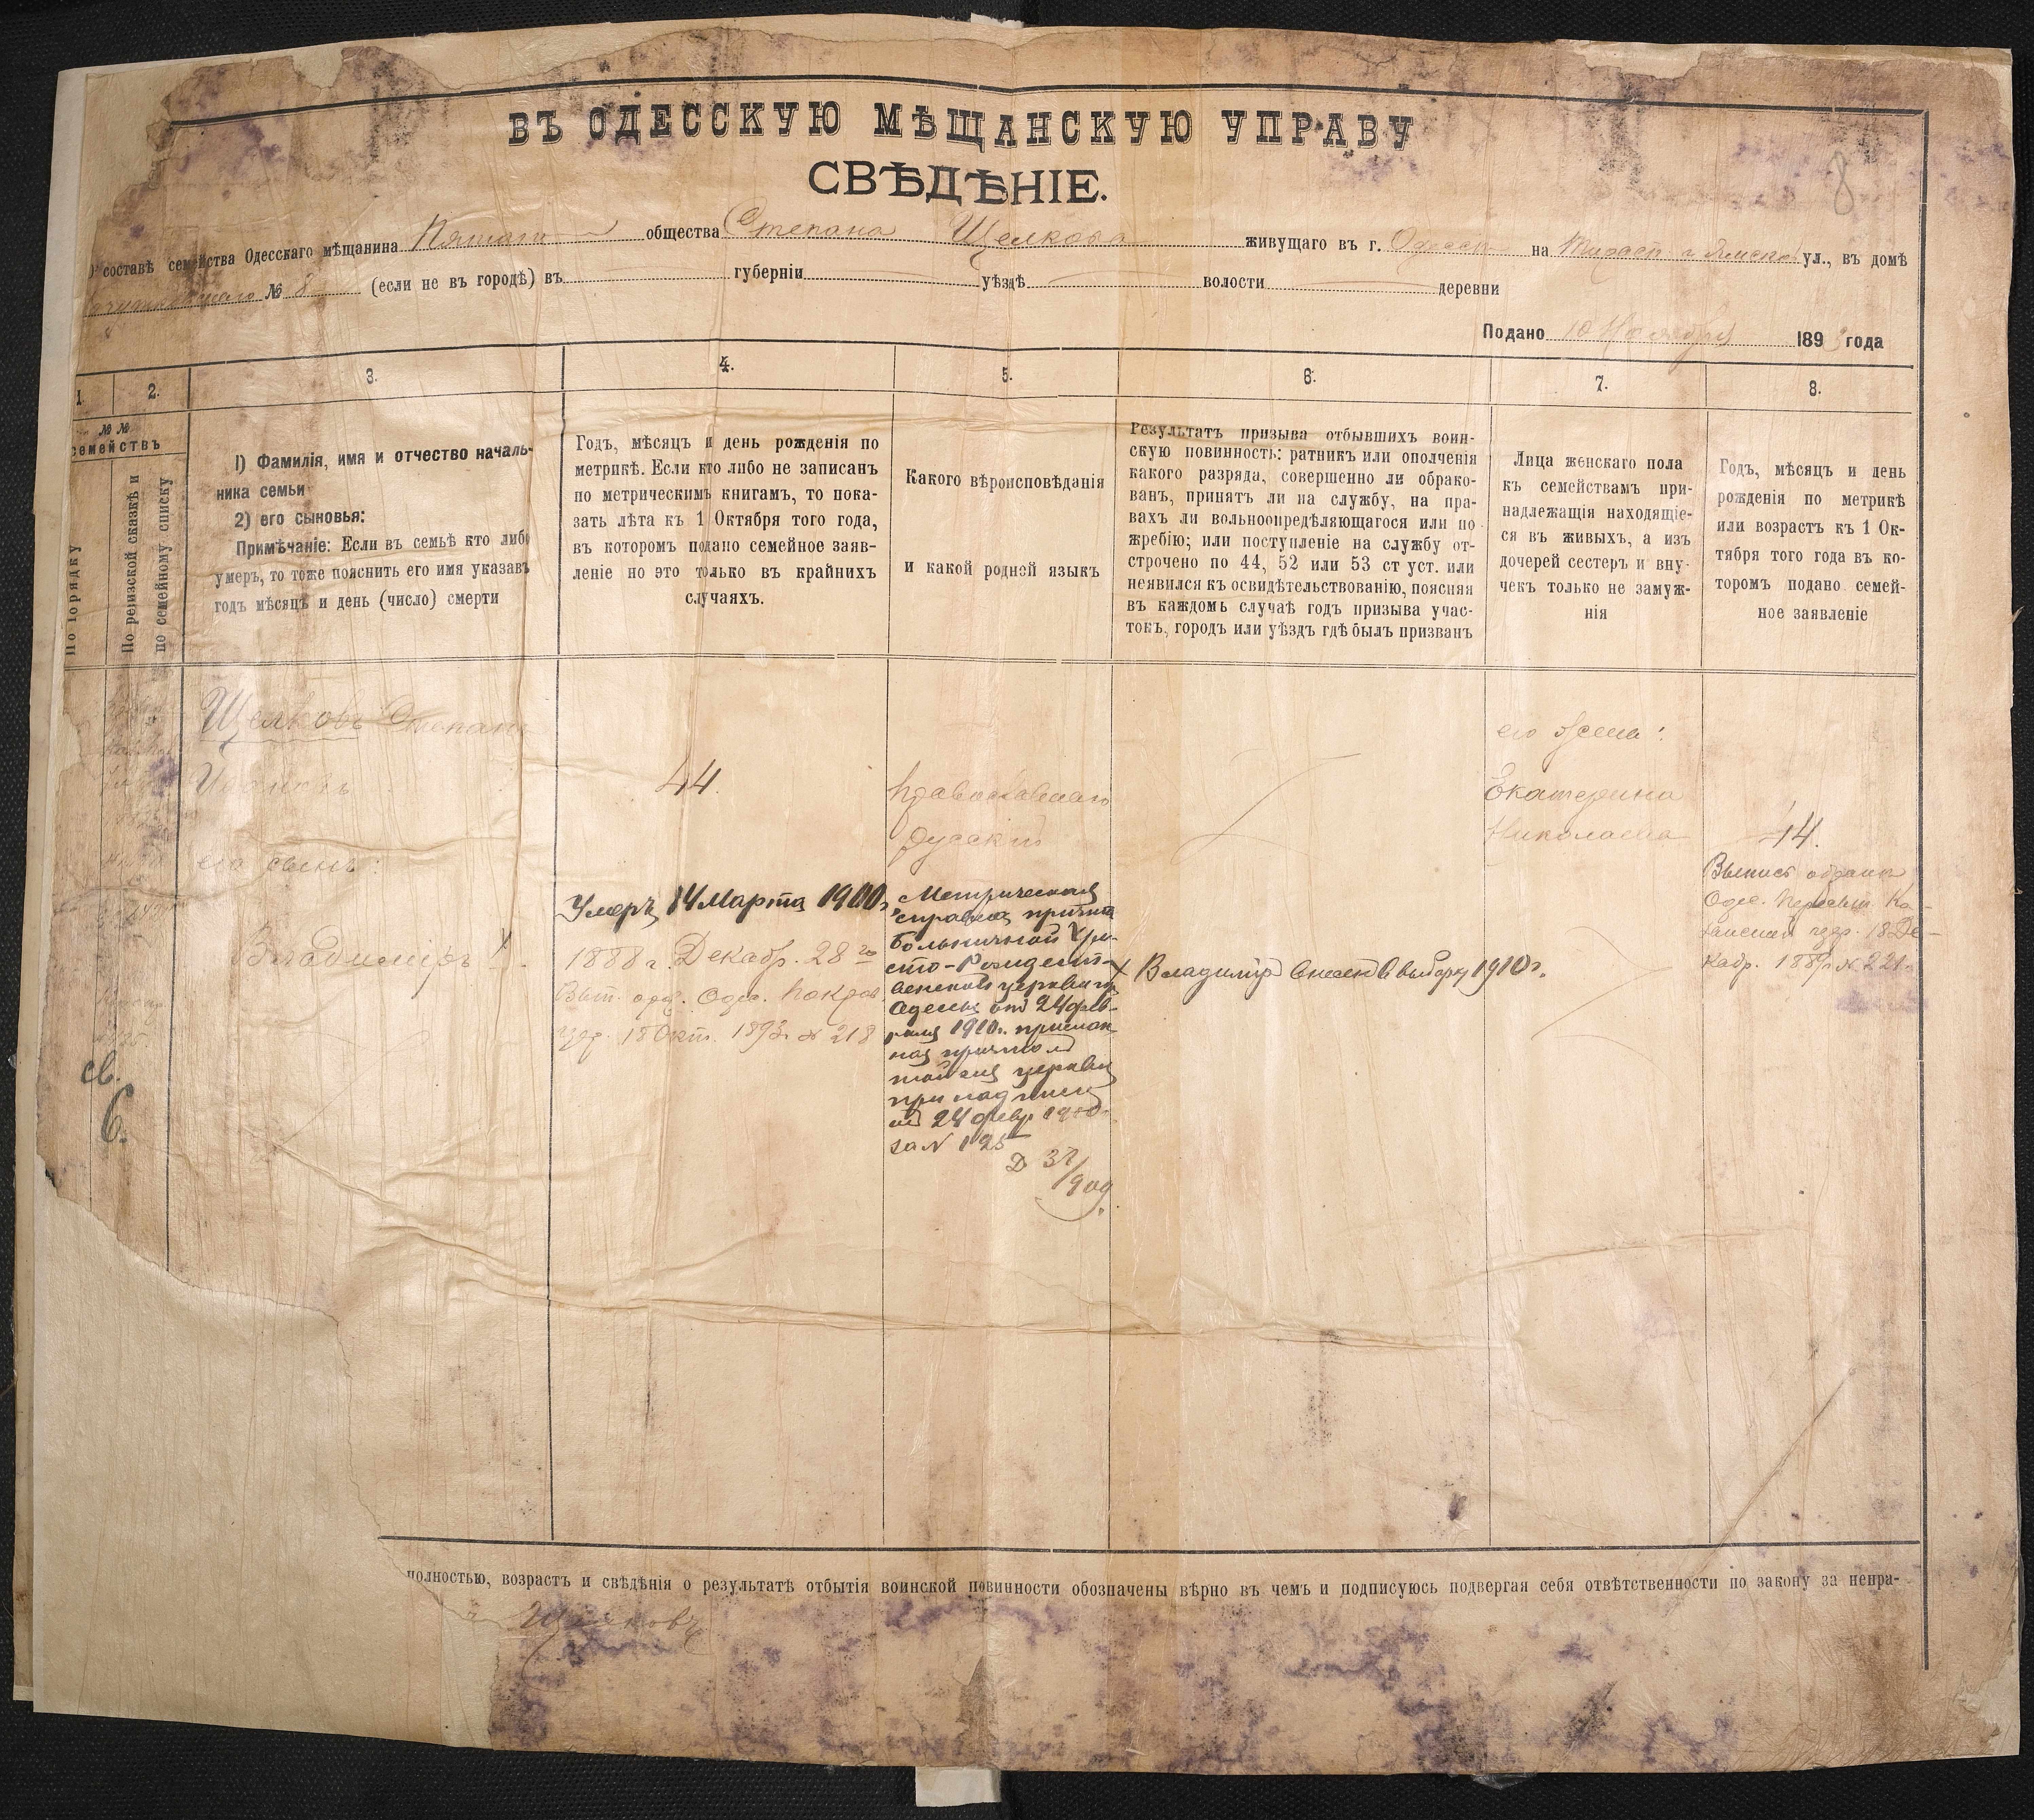 ВЪ ОДЕССКУЮ МѢЩАНСКУЮ УПРАВУ
СВѢДѢНІЕ.
8
составѣ семейства Одесскаго мѣщанина общества Степана Щелкова живущаго въ г. Одессѣ на ул., въ домѣ
№ 8 (если не въ городѣ) въ губерніи уѣздѣ волости деревни
Подано 10 Ноября 189 года
1.
2.
3.
4.
5.
6.
7.
8.
№ №
семействъ
По порядку
По ревизской сказкѣ и
по семейному списку
1) Фамилія, имя и отчество началь-
ника семьи
2) его сыновья:
Примѣчаніе: Если въ семьѣ кто либо
умеръ, то тоже пояснить его имя указавъ
годъ мѣсяцъ и день (число) смерти
Годъ, мѣсяцъ и день рожденія по
метрикѣ. Если кто либо не записанъ
по метрическимъ книгамъ, то пока-
зать лѣта къ 1 Октября того года,
въ которомъ подано семейное заяв-
леніе но это только въ крайнихъ
случаяхъ.
Какого вѣроисповѣданія
и какой родной языкъ
Результатъ призыва отбывшихъ воин-
скую повинность: ратникъ или ополченія
какого разряда, совершенно ли обрако-
ванъ, принятъ ли на службу, на пра-
вахъ ли вольноопредѣляющагося или по
жребію; или поступленіе на службу от-
строчено по 44, 52 или 53 ст уст. или
неявился къ освидѣтельствованію, поясняя
въ каждомъ случаѣ годъ призыва учас-
токъ, городъ или уѣздъ гдѣ былъ призванъ
Лица женскаго пола
къ семействамъ при-
надлежащія находящіе-
ся въ живыхъ, а изъ
дочерей сестеръ и вну-
чекъ только не замуж-
нія
Годъ, мѣсяцъ и день
рожденія по метрикѣ
или возрастъ къ 1 Ок-
тября того года въ ко-
торомъ подано семей-
ное заявленіе
Щелковъ Степанъ
44.
его сынъ:
Владиміръ
св.
6.
Умеръ 14 Марта 1900
1888 г. Декабр. 28 го
Одес. Покров.
цер. 18 Окт. 189 № 218
русскій
Метрическая
справка причта
больничной Хри-
сто-Рождест-
венской церкви гор
Одессы от 24 фев-
раля 1910 г.
церкви
при
24 февр.
за N 125
Д 37/909
Владимір внесен в выборку 1910 г.
его жена:
Екатерина
44.
Выпись
Одес.
цер. 18 Де-
кабр. № 221
полностью, возрастъ и свѣдѣнія о результатѣ отбытія воинской повинности обозначены вѣрно въ чемъ и подписуюсь подвергая себя отвѣтственности по закону за непра-
Щелковъ